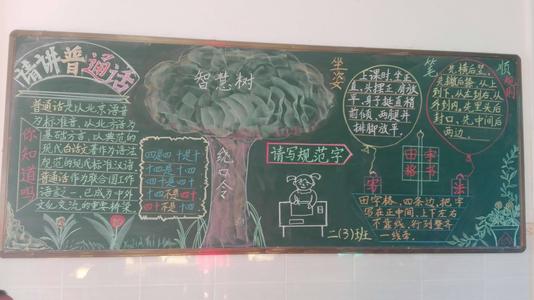 请讲普通话
你知道吗
普通话是以北京语音
为标准音，以北方话为
基础方言，以典范的
现代白话文著作为语法
规范的现代标准汉语，
普通话作为联合国工作
语言之一，已成为中外
文化交流的重要桥梁
智慧树
绕口令
四是四 十是十
十四是十四
四十是四十
十四不是四十
四十不是十四
坐姿
上课时，坐正
直，头摆正，肩放
平，身子挺直稍
前倾，两腿并
排脚放平。
请写规范字
二(3)班
笔顺
先横后竖，
先撇后捺，从上
到下，从左到右，从
外到内，先里头后
封口，先中间后
两边
田字格书
写
法
田字格，四条边，把字
写在正中间，上下左右
不靠线，行到整齐
一线去。